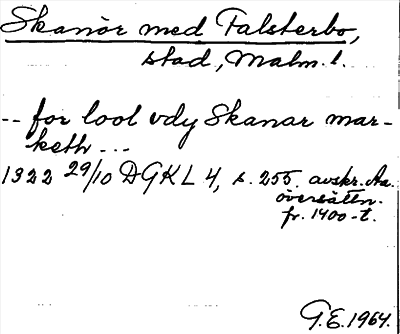 Skanör med Falsterbo,
stad, Malm. l.
-- for lool vdy Skanar mar-
keth ---
1322 29/10 DGKL 4, s. 255. avskr. Aa.
översättn.
fr. 1400-t.
G.E. 1964.